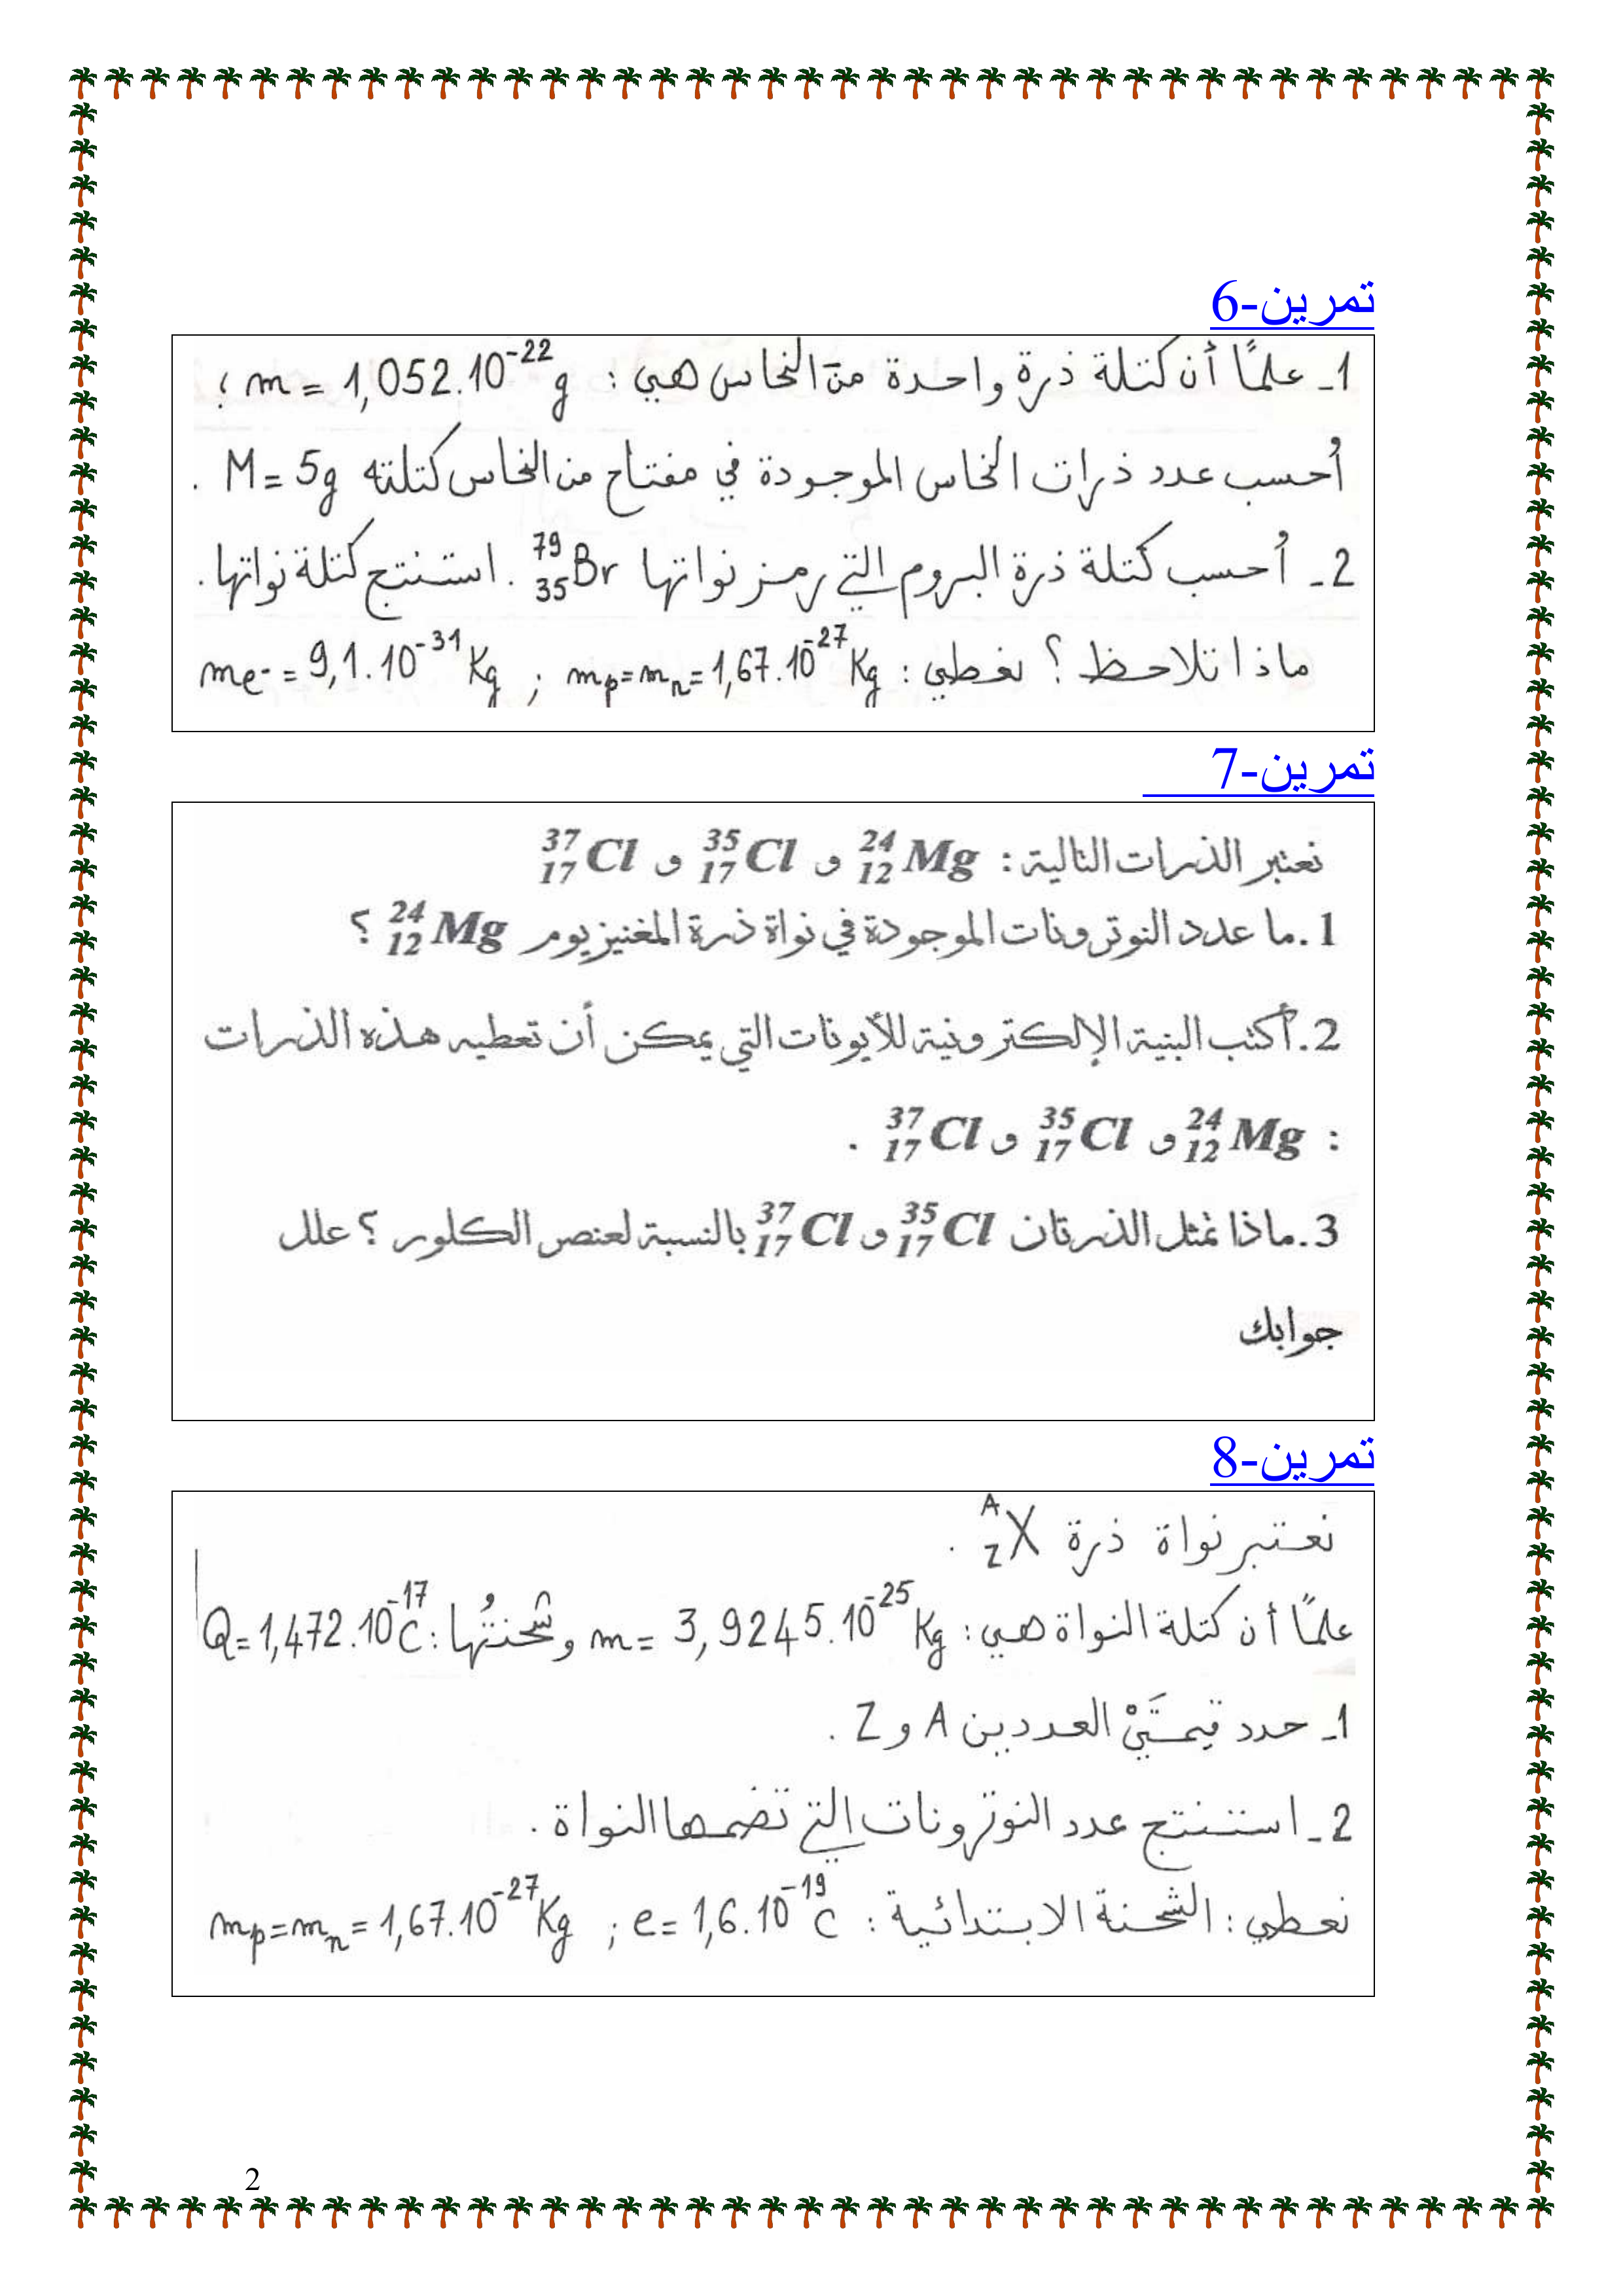 تمرين-6
1- علمًا أن كتلة ذرة واحدة من النحاس هي : m = 1,052.10⁻²² g ؛
أُحسب عدد ذرات النحاس الموجودة في مفتاح من النحاس كتلته M = 5g .
2- أُحسب كتلة ذرة البروم التي رمز نواتها ⁷⁹₃₅Br . استنتج كتلة نواتها.
ماذا تلاحظ ؟ نعطي : mp=mn=1,67.10⁻²⁷ Kg ; me- = 9,1.10⁻³¹ Kg
تمرين-7
نعتبر الذرات التالية : ²⁴₁₂Mg و ³⁵₁₇Cl و ³⁷₁₇Cl
1.ما عدد النوترونات الموجودة في نواة ذرة المغنيزيوم ²⁴₁₂Mg ؟
2.أكتب البنية الإلكترونية للأيونات التي يمكن أن تعطيه هذه الذرات
: ²⁴₁₂Mg و ³⁵₁₇Cl و ³⁷₁₇Cl .
3.ماذا تمثل الذرتان ³⁵₁₇Cl و ³⁷₁₇Cl بالنسبة لعنصر الكلور ؟ علل
جوابك
تمرين-8
نعتبر نواة ذرة ᴬ_ZX .
علمًا أن كتلة النواة هي : m = 3,9245.10⁻²⁵ Kg وشحنتُها : Q=1,472.10⁻¹⁷ C
1- حدد قيمتَيْ العددين A و Z .
2- استنتج عدد النوترونات التي تضمها النواة .
نعطي : الشحنة الابتدائية : e= 1,6.10⁻¹⁹ C ; mp=mn = 1,67.10⁻²⁷ Kg
2